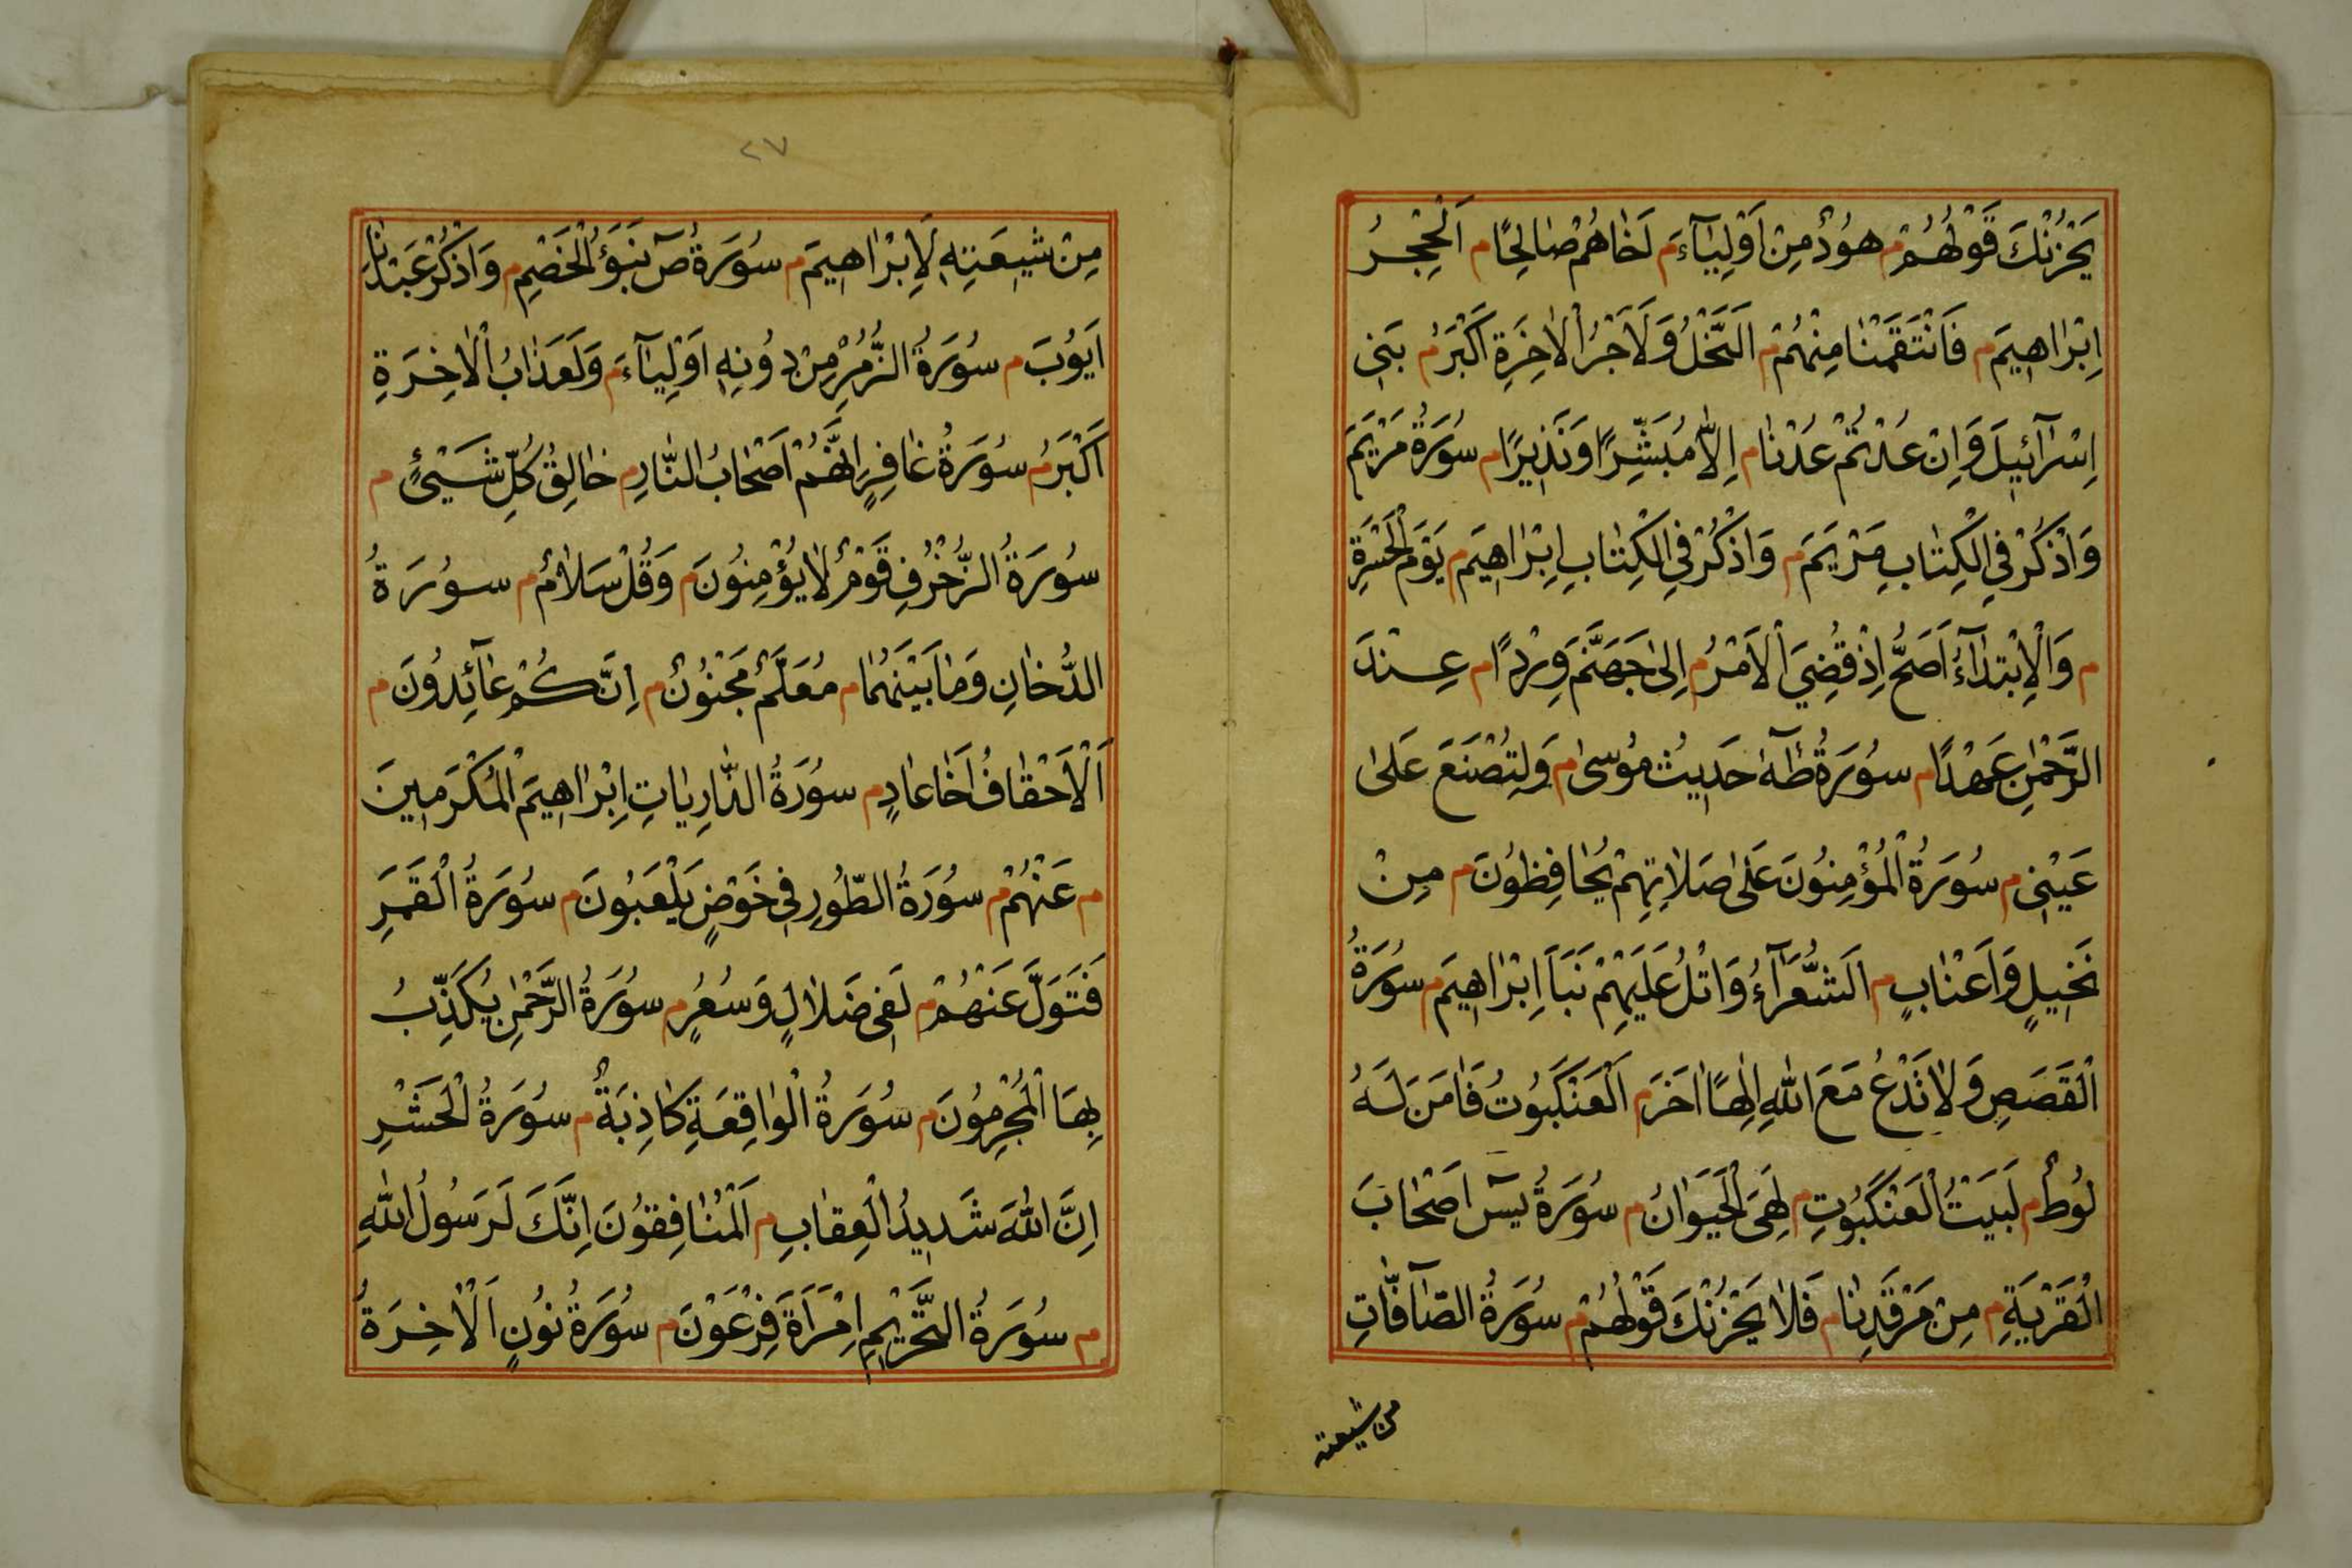 يَحْزُنْكَ قَوْلُهُمْ م هُودٌ مِنْ اَوْلِيٰٓاءَ م اَخٰاهُمْ صٰالِحًا م اَلْحِجْرُ
اِبْرٰاهٖيمَ م فَانْتَقَمْنٰا مِنْهُمْ م اَلنَّحْلُ وَلَاَجْرُ الْاٰخِرَةِ اَكْبَرُ م بَنٖي
اِسْرٰٓائٖيلَ وَاِنْ عُدْتُمْ عُدْنٰا م اِلّٰا مُبَشِّرًا وَنَذٖيرًا م سُورَةُ مَرْيَمَ
وَاذْكُرْ فِي الْكِتٰابِ مَرْيَمَ م وَاذْكُرْ فِي الْكِتٰابِ اِبْرٰاهٖيمَ م يَوْمَ الْحَسْرَةِ
م وَالْاِبْتِدٰٓاءُ اَصَحُّ اِذْ قُضِيَ الْاَمْرُ م اِلىٰ جَهَنَّمَ وِرْدًا م عِنْدَ
الرَّحْمٰنِ عَهْدًا م سُورَةُ طٰهٰ حَدٖيثُ مُوسىٰ م وَلِتُصْنَعَ عَلىٰ
عَيْنٖي م سُورَةُ الْمُؤْمِنُونَ عَلىٰ صَلَاتِهِمْ يُحٰافِظُونَ م مِنْ
نَخٖيلٍ وَاَعْنٰابٍ م اَلشُّعَرٰٓاءُ وَاتْلُ عَلَيْهِمْ نَبَاَ اِبْرٰاهٖيمَ م سُورَةُ
الْقَصَصِ وَلٰا تَدْعُ مَعَ اللّٰهِ اِلٰهًا اٰخَرَ م اَلْعَنْكَبُوتُ فَاٰمَنَ لَهُ
لُوطٌ م لَبَيْتُ الْعَنْكَبُوتِ م لَهِيَ الْحَيَوٰانُ م سُورَةُ يٓسٓ اَصْحٰابَ
الْقَرْيَةِ م مِنْ مَرْقَدِنٰا م فَلٰا يَحْزُنْكَ قَوْلُهُمْ م سُورَةُ الصّٰٓافّٰاتِ
من شيعته
٢٧
مِنْ شٖيعَتِهٖ لَاِبْرٰاهٖيمَ م سُورَةُ صٓ نَبَؤُ الْخَصْمِ م وَاذْكُرْ عَبْدَنٰا
اَيُّوبَ م سُورَةُ الزُّمَرِ مِنْ دُونِهٖ اَوْلِيٰٓاءَ م وَلَعَذٰابُ الْاٰخِرَةِ
اَكْبَرُ م سُورَةُ غٰافِرٍ اَنَّهُمْ اَصْحٰابُ النّٰارِ م خٰالِقُ كُلِّ شَيْئٍ م
سُورَةُ الزُّخْرُفِ قَوْمٌ لٰا يُؤْمِنُونَ م وَقُلْ سَلٰامٌ م سُورَةُ
الدُّخٰانِ وَمٰا بَيْنَهُمٰا م مُعَلَّمٌ مَجْنُونٌ م اِنَّكُمْ عٰٓائِدُونَ م
اَلْاَحْقٰافُ اَخٰا عٰادٍ م سُورَةُ الذّٰارِيٰاتِ اِبْرٰاهٖيمَ الْمُكْرَمٖينَ
م عَنْهُمْ م سُورَةُ الطُّورِ فٖي خَوْضٍ يَلْعَبُونَ م سُورَةُ الْقَمَرِ
فَتَوَلَّ عَنْهُمْ م لَفٖي ضَلٰالٍ وَسُعُرٍ م سُورَةُ الرَّحْمٰنِ يُكَذِّبُ
بِهَا الْمُجْرِمُونَ م سُورَةُ الْوٰاقِعَةِ كٰاذِبَةٌ م سُورَةُ الْحَشْرِ
اِنَّ اللّٰهَ شَدٖيدُ الْعِقٰابِ م اَلْمُنٰافِقُونَ اِنَّكَ لَرَسُولُ اللّٰهِ
م سُورَةُ التَّحْرٖيمِ اِمْرَاَةَ فِرْعَوْنَ م سُورَةُ نُونٍ اَلْاٰخِرَةُ